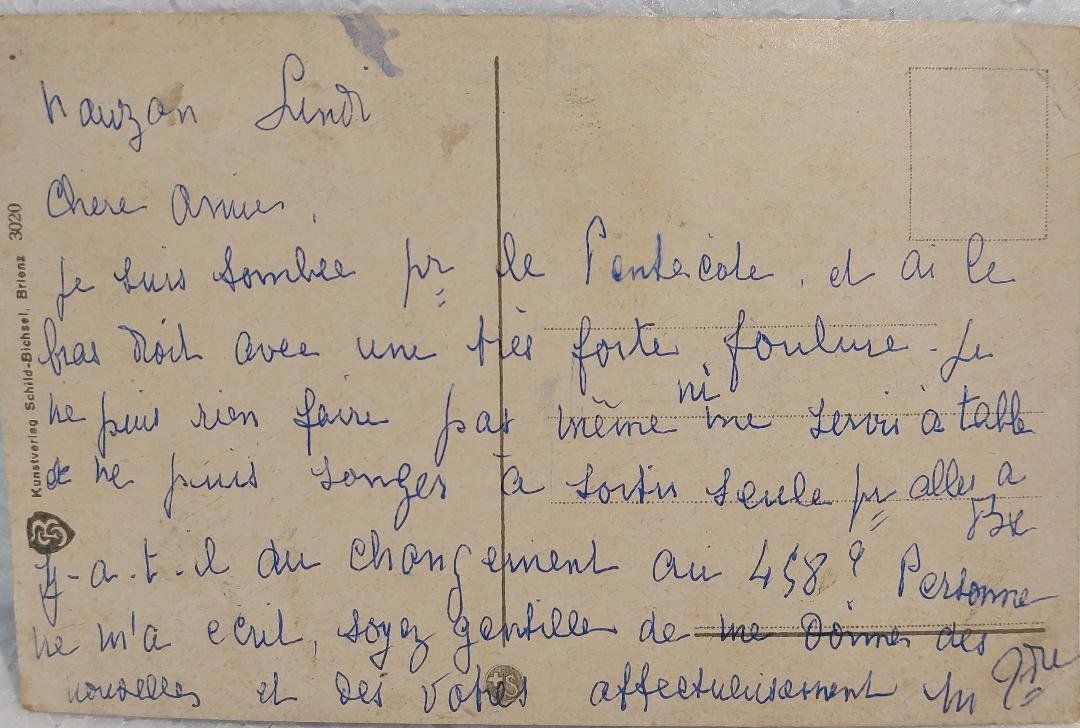 Nauzan Lundi
Chere Amie,
Je suis tombée pr le Pentecote, et ai le
bras droit avec une très forte foulure. Je
ne puis rien faire pas même ni me servir à table
& ne puis songer à sortir seule pr aller a
Bx
Y-a-t-il du changement au 458? Personne
ne m'a ecrit, soyez gentille de me donner des
nouvelles et des votres affectueusement
Kunstverlag Schild-Bichsel, Brienz 3020
S